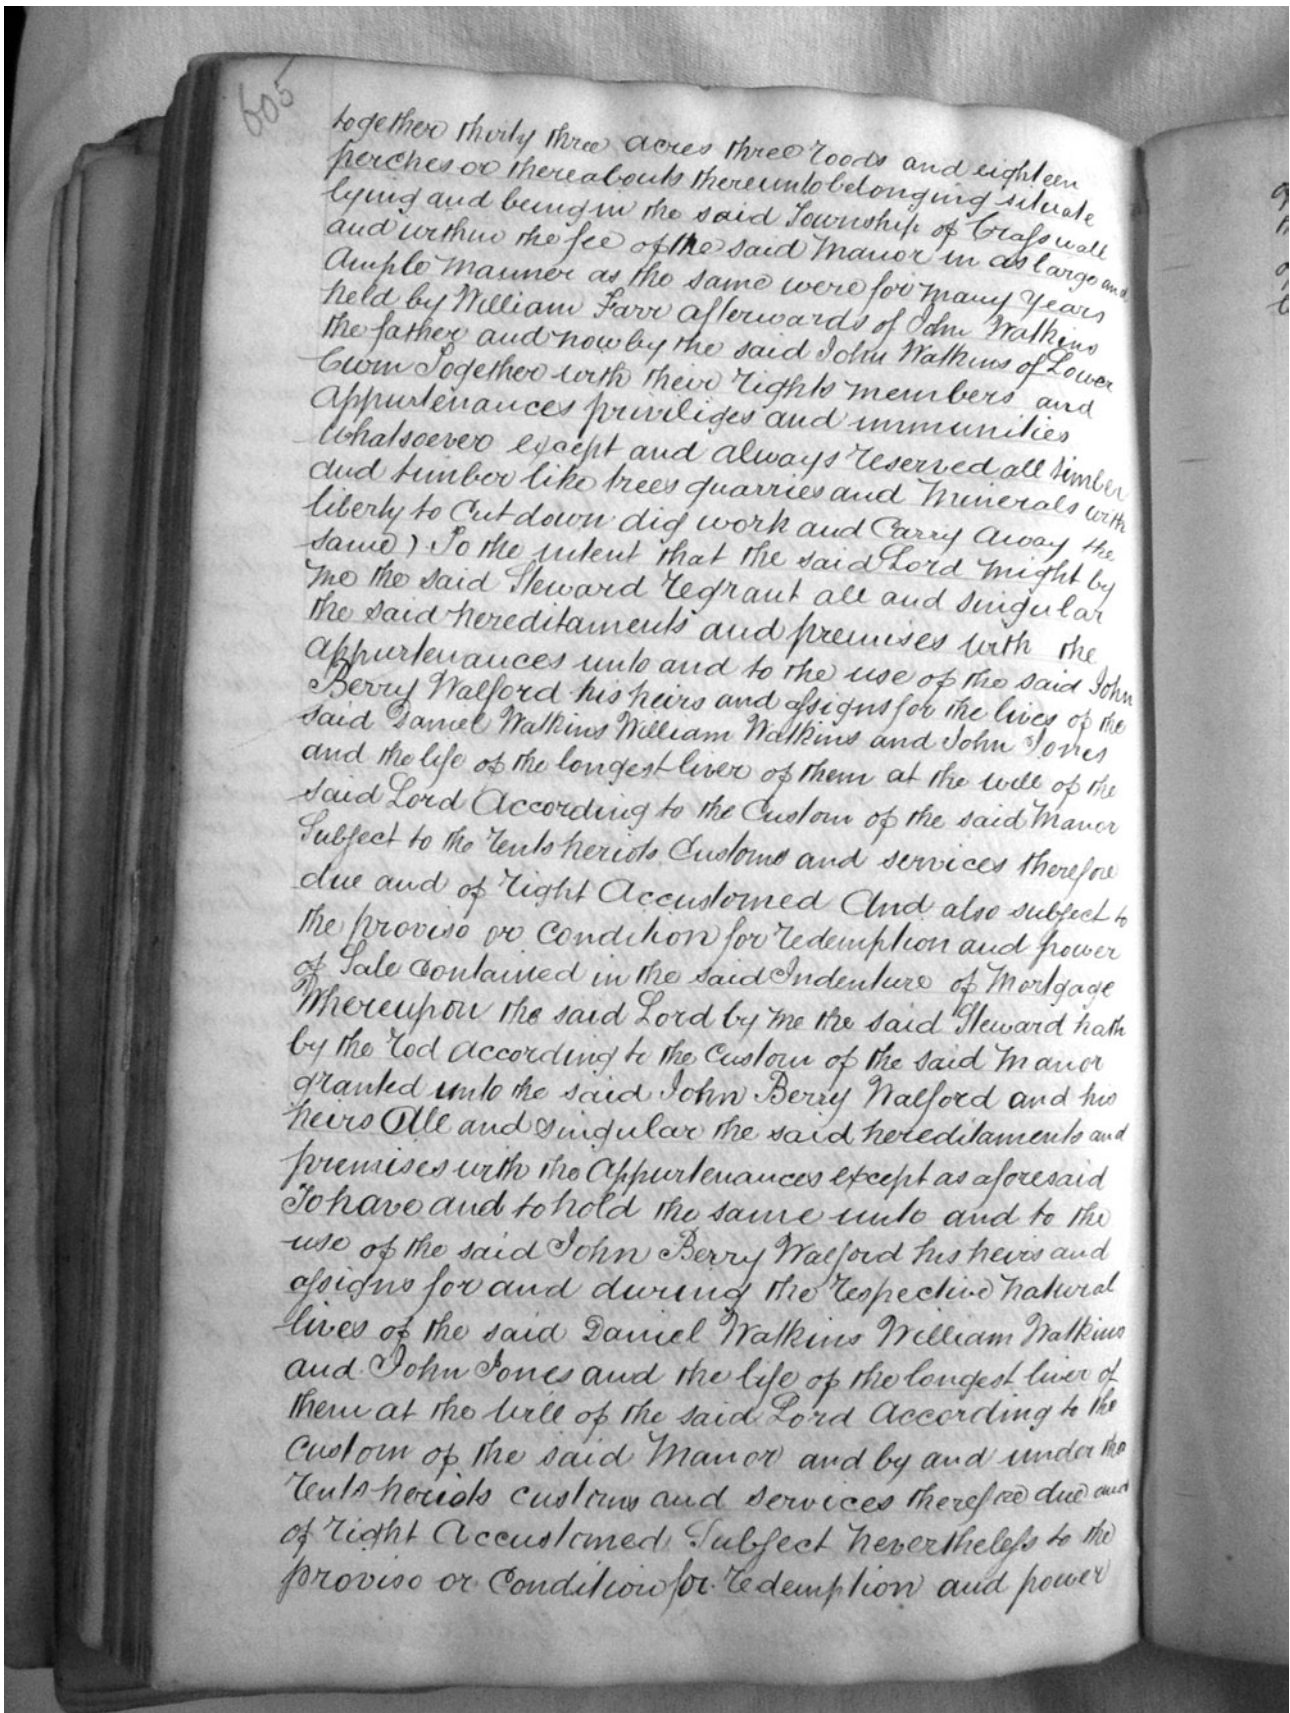 605
together thirty three acres three roods and eighteen
perches or thereabouts thereunto belonging situate
lying and being in the said Township of Crasswall
and within the fee of the said Manor in as large and
Ample Manner as the same were for many years
held by William Farr afterwards of John Watkins
the father and now by the said John Watkins of Lower
Cwm Together with their rights members and
Appurtenances priviliges and immunities
Whatsoever except and always reserved all timber
and timber like trees quarries and Minerals with
liberty to Cut down dig work and Carry Away the
same) To the intent that the said Lord Might by
Me the said Steward regrant all and singular
the said hereditaments and premises with the
Appurtenances unto and to the use of the said John
Berry Walford his heirs and assigns for the lives of the
said Daniel Watkins William Watkins and John Jones
and the life of the longest liver of them at the will of the
said Lord According to the Custom of the said Manor
Subject to the rents heriots Customs and services therefore
due and of right Accustomed And also subject to
the proviso or Condition for redemption and power
of Sale Contained in the said Indenture of Mortgage
Whereupon the said Lord by Me the said Steward hath
by the rod According to the Custom of the said Manor
granted unto the said John Berry Walford and his
heirs All and singular the said hereditaments and
premises with the Appurtenances except as aforesaid
To have and to hold the same unto and to the
use of the said John Berry Walford his heirs and
assigns for and during the respective natural
lives of the said Daniel Watkins William Watkins
and John Jones and the life of the longest liver of
them at the will of the said Lord According to the
Custom of the said Manor and by and under the
rents heriots customs and services therefore due and
of right Accustomed Subject Nevertheless to the
proviso or Condition for redemption and power